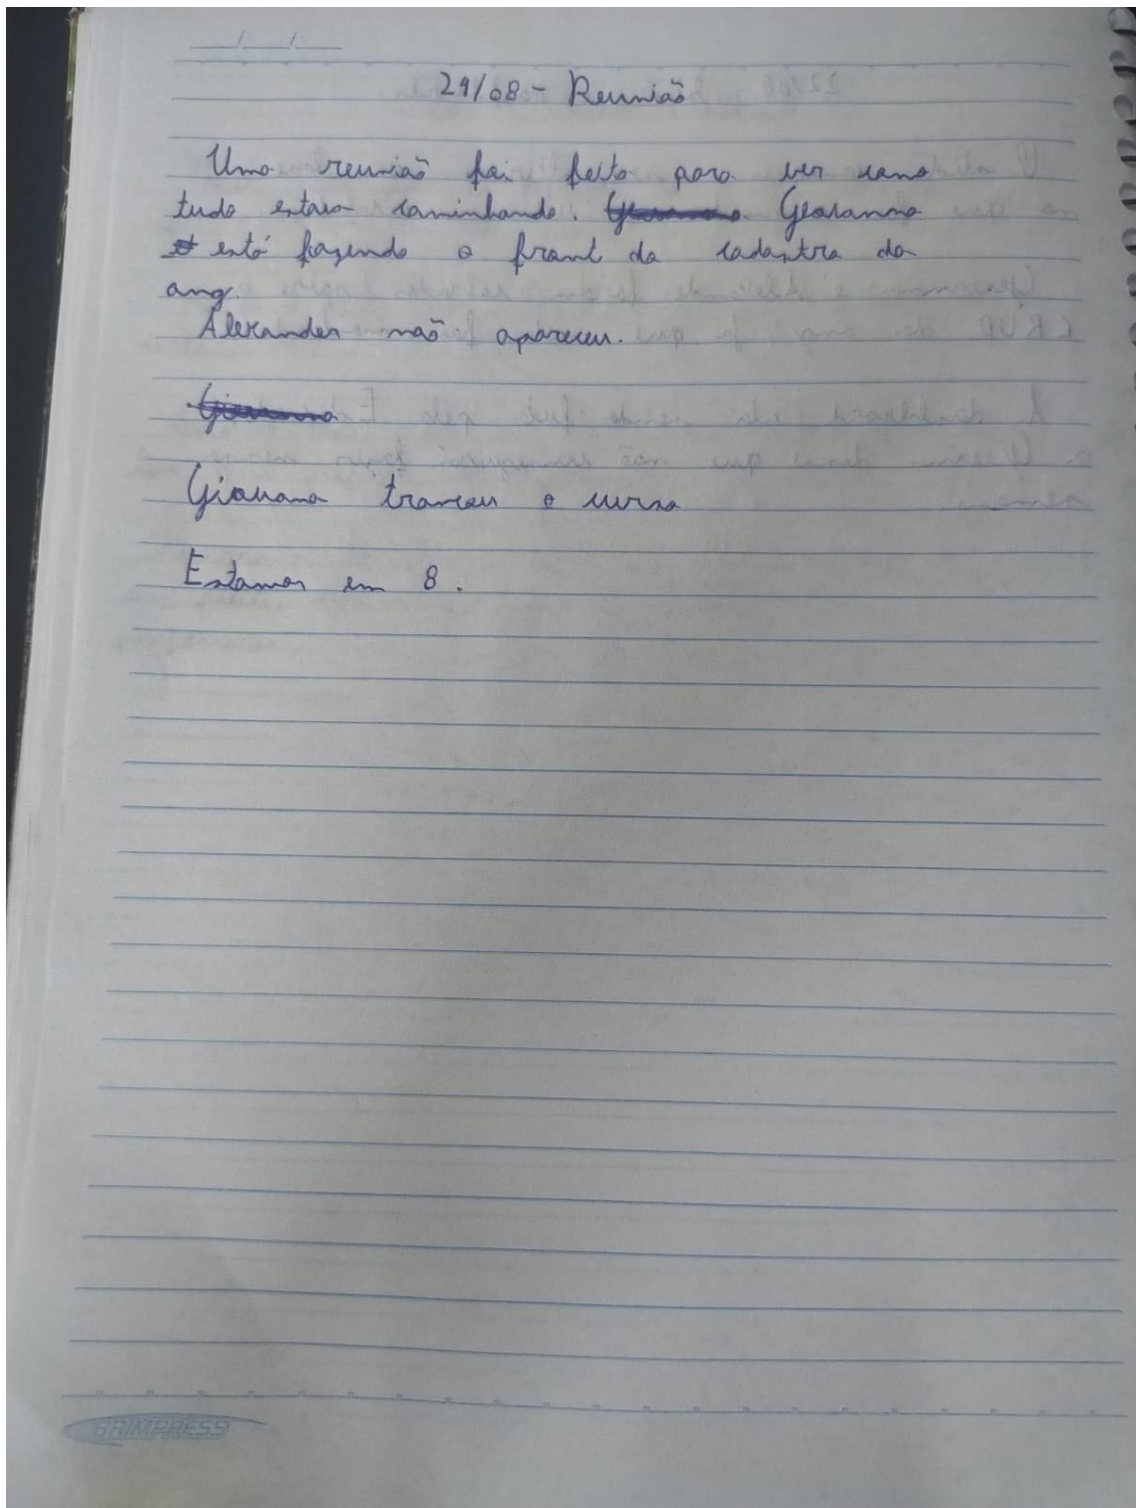 29/08 - Reunião
Uma reunião foi feita para ver como
tudo estava caminhando. Geovanna
está fazendo o front do cadastro da
ong.
Alexander não apareceu.
Giovana trancou o curso
Estamos em 8.
GRIMPRESS